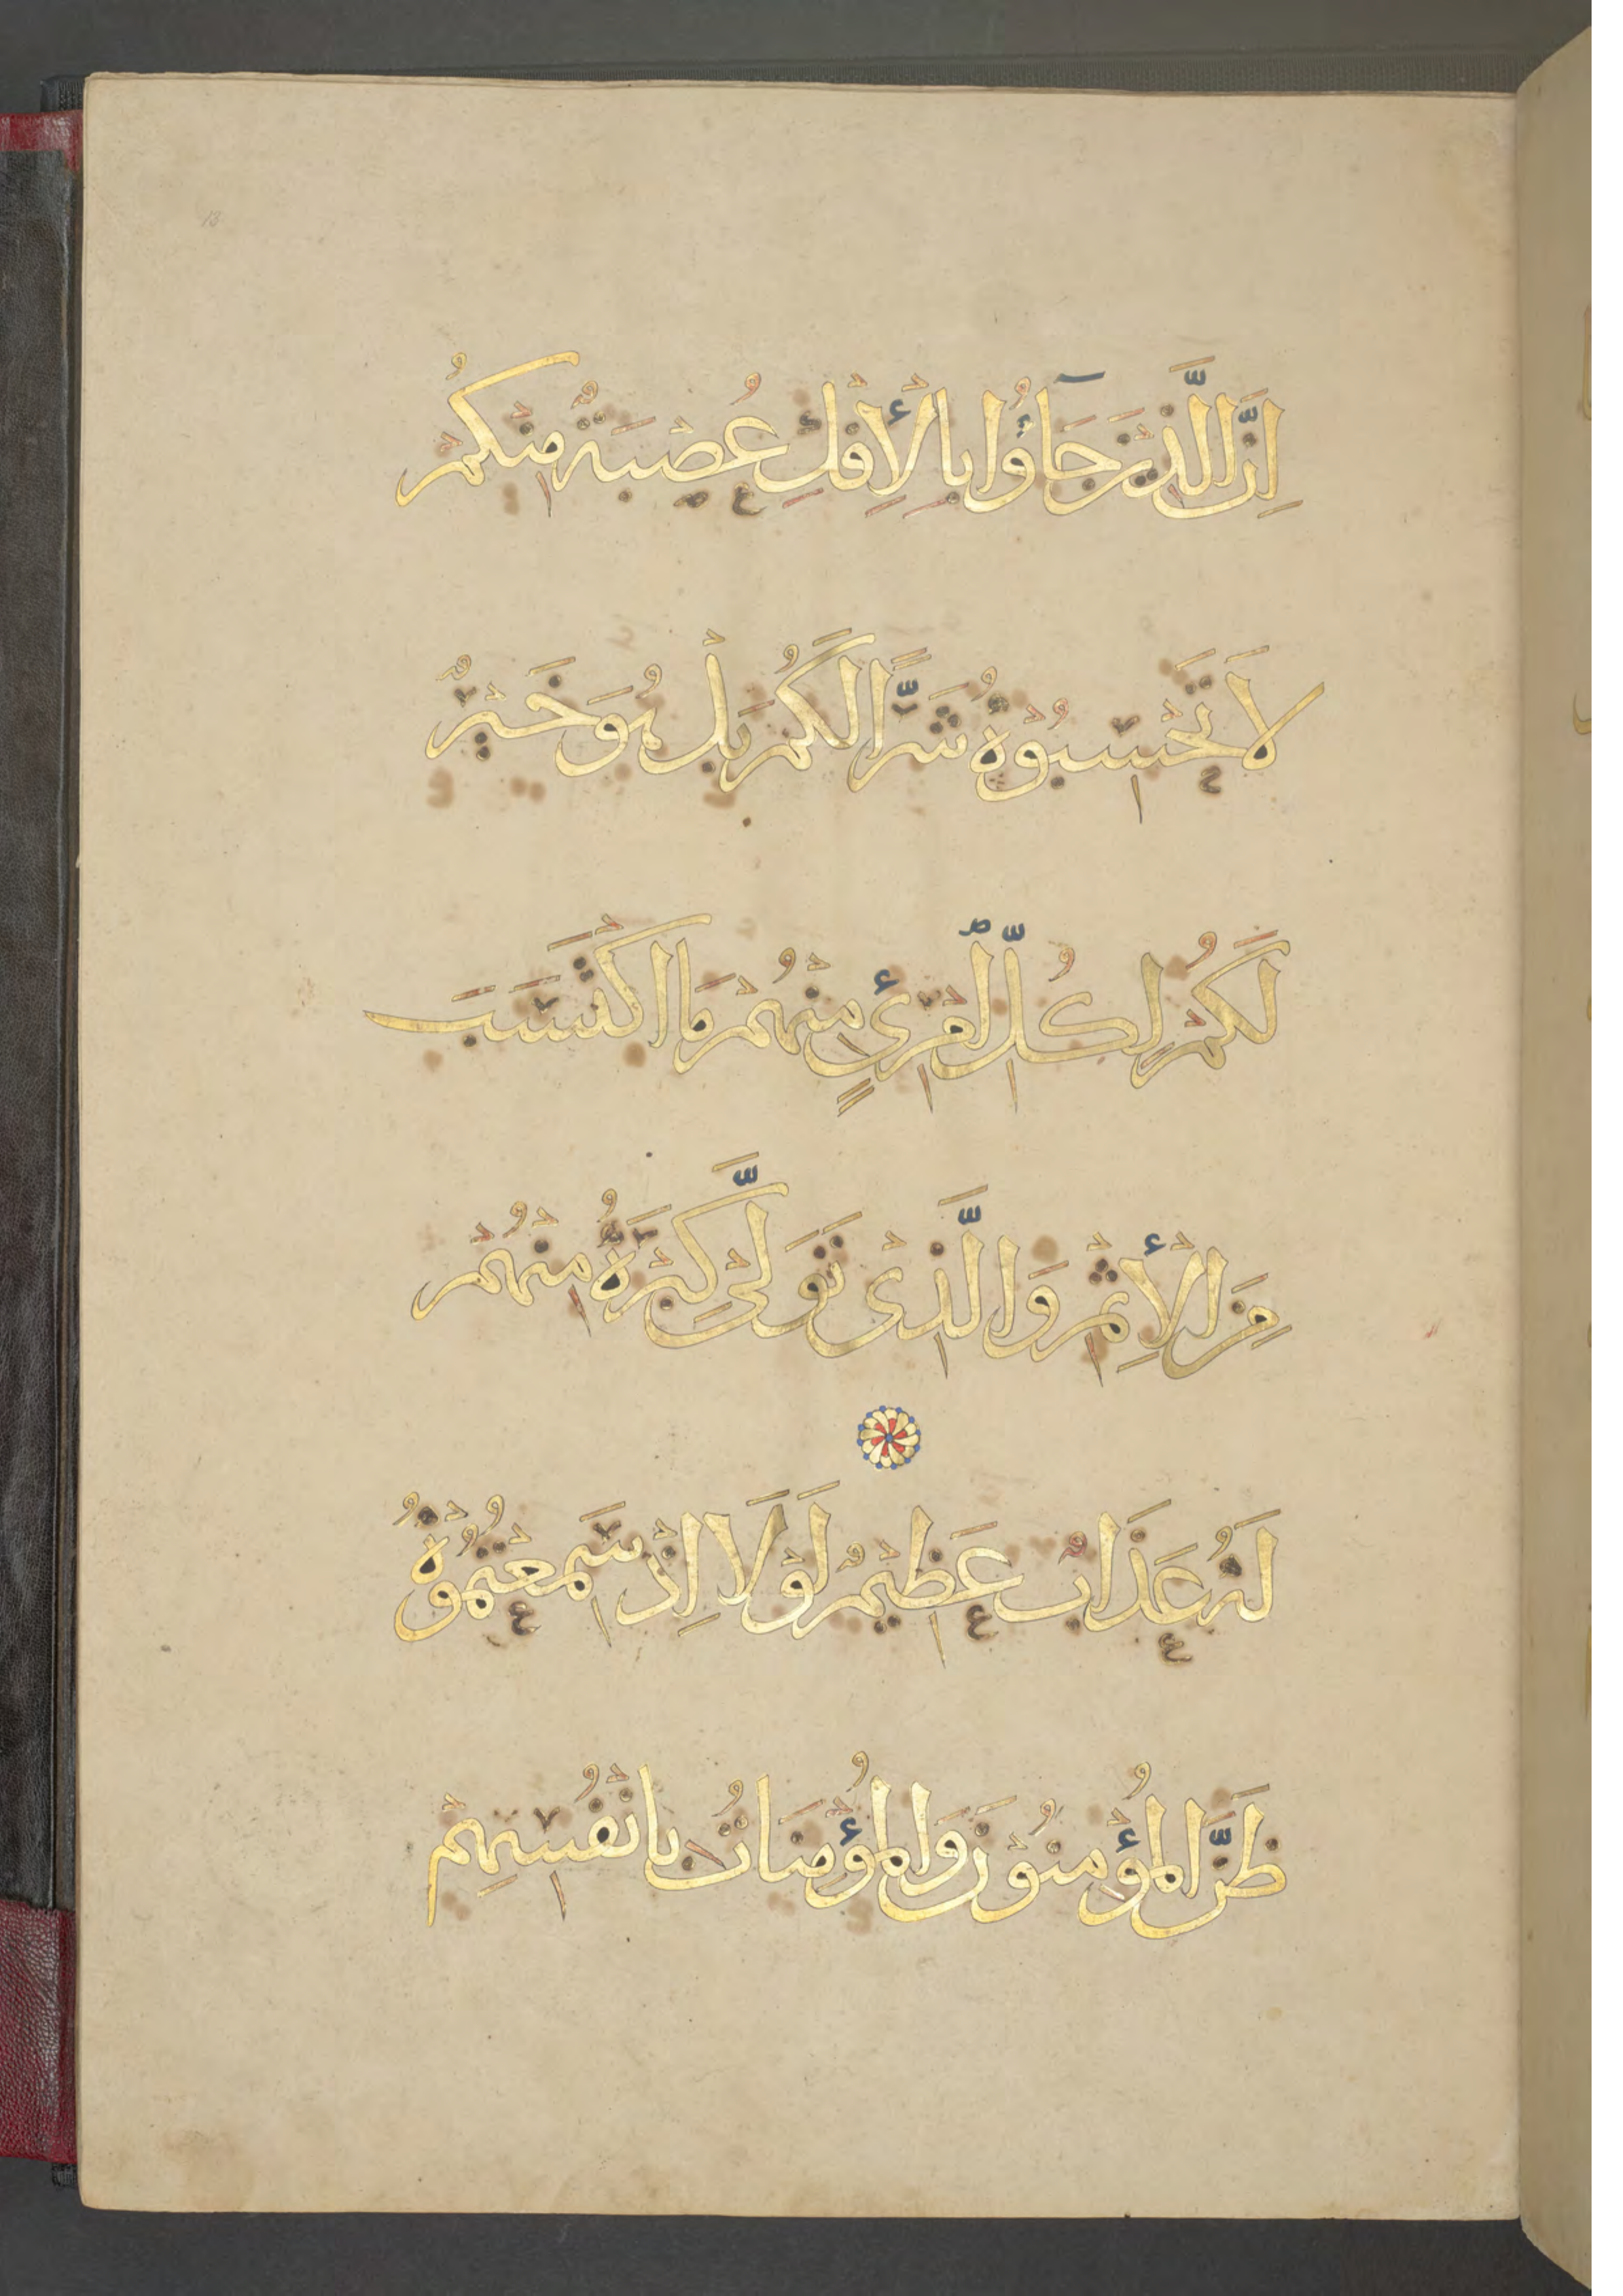 اِنَّ الَّذِيْنَ جَآؤُا بِالْأِفْكِ عُصْبَةٌ مِنْكُمْ
لَا تَحْسَبُوْهُ شَرًّا لَكُمْ بَلْ هُوَ خَيْرٌ
لَكُمْ لِكُلِّ امْرِئٍ مِنْهُمْ مَا اكْتَسَبَ
مِنَ الْأِثْمِ وَالَّذِىْ تَوَلَّىْ كِبْرَهُ مِنْهُمْ
لَهُ عَذَابٌ عَظِيْمٌ لَوْلَا اِذْ سَمِعْتُمُوْهُ
ظَنَّ الْمُؤْمِنُوْنَ وَالْمُؤْمِنَاتُ بِاَنْفُسِهِمْ